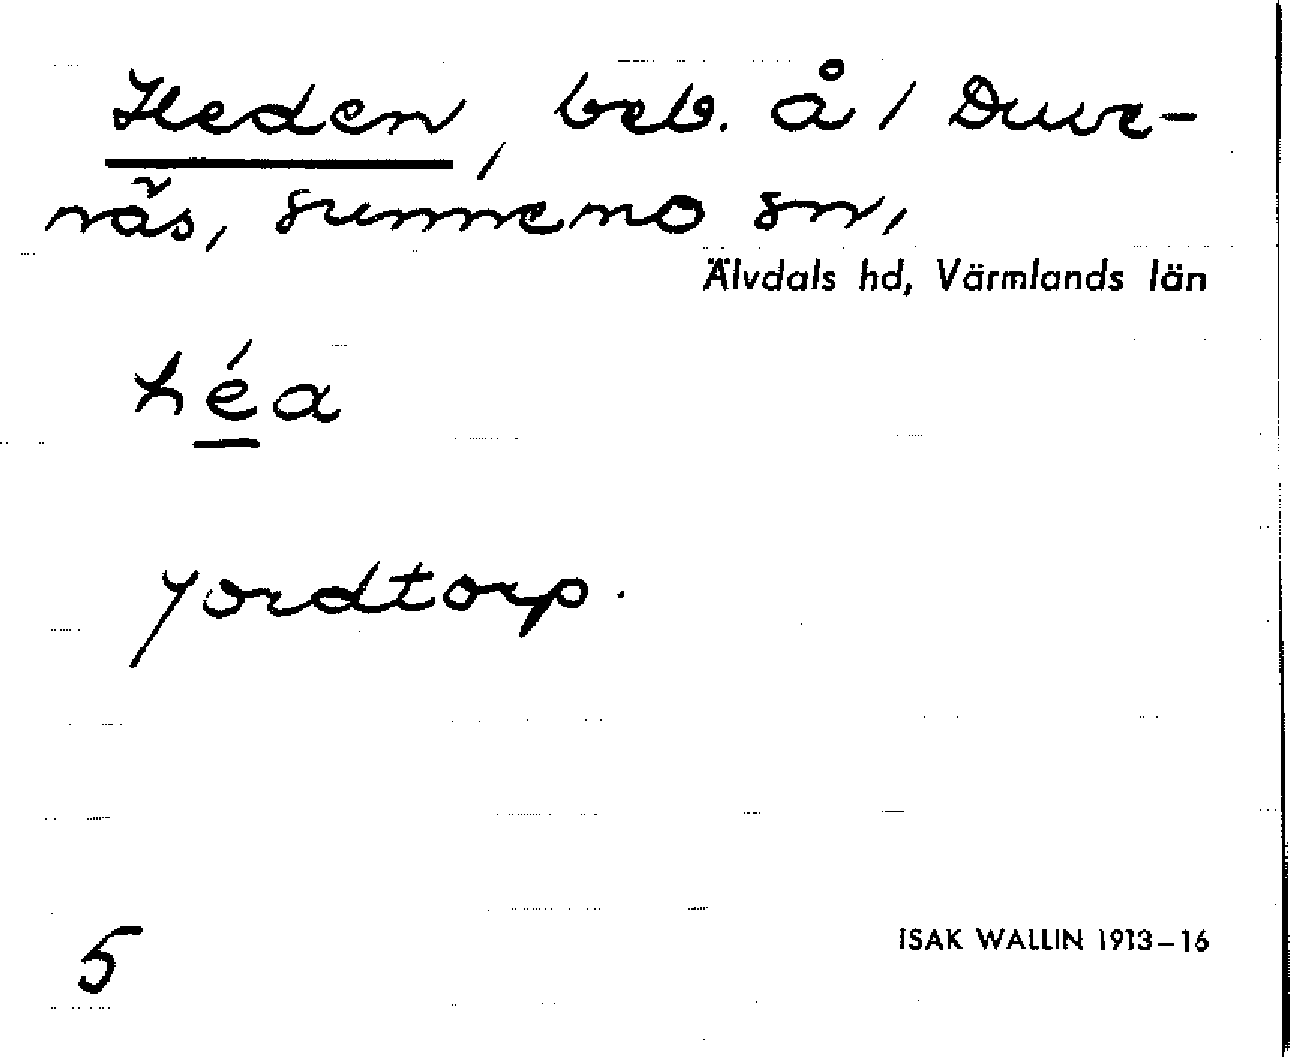 Heden, beb. å / Duve-
näs, Sunnemo sn,
Älvdals hd, Värmlands län
héa
Jordtorp.
5
ISAK WALLIN 1913–16